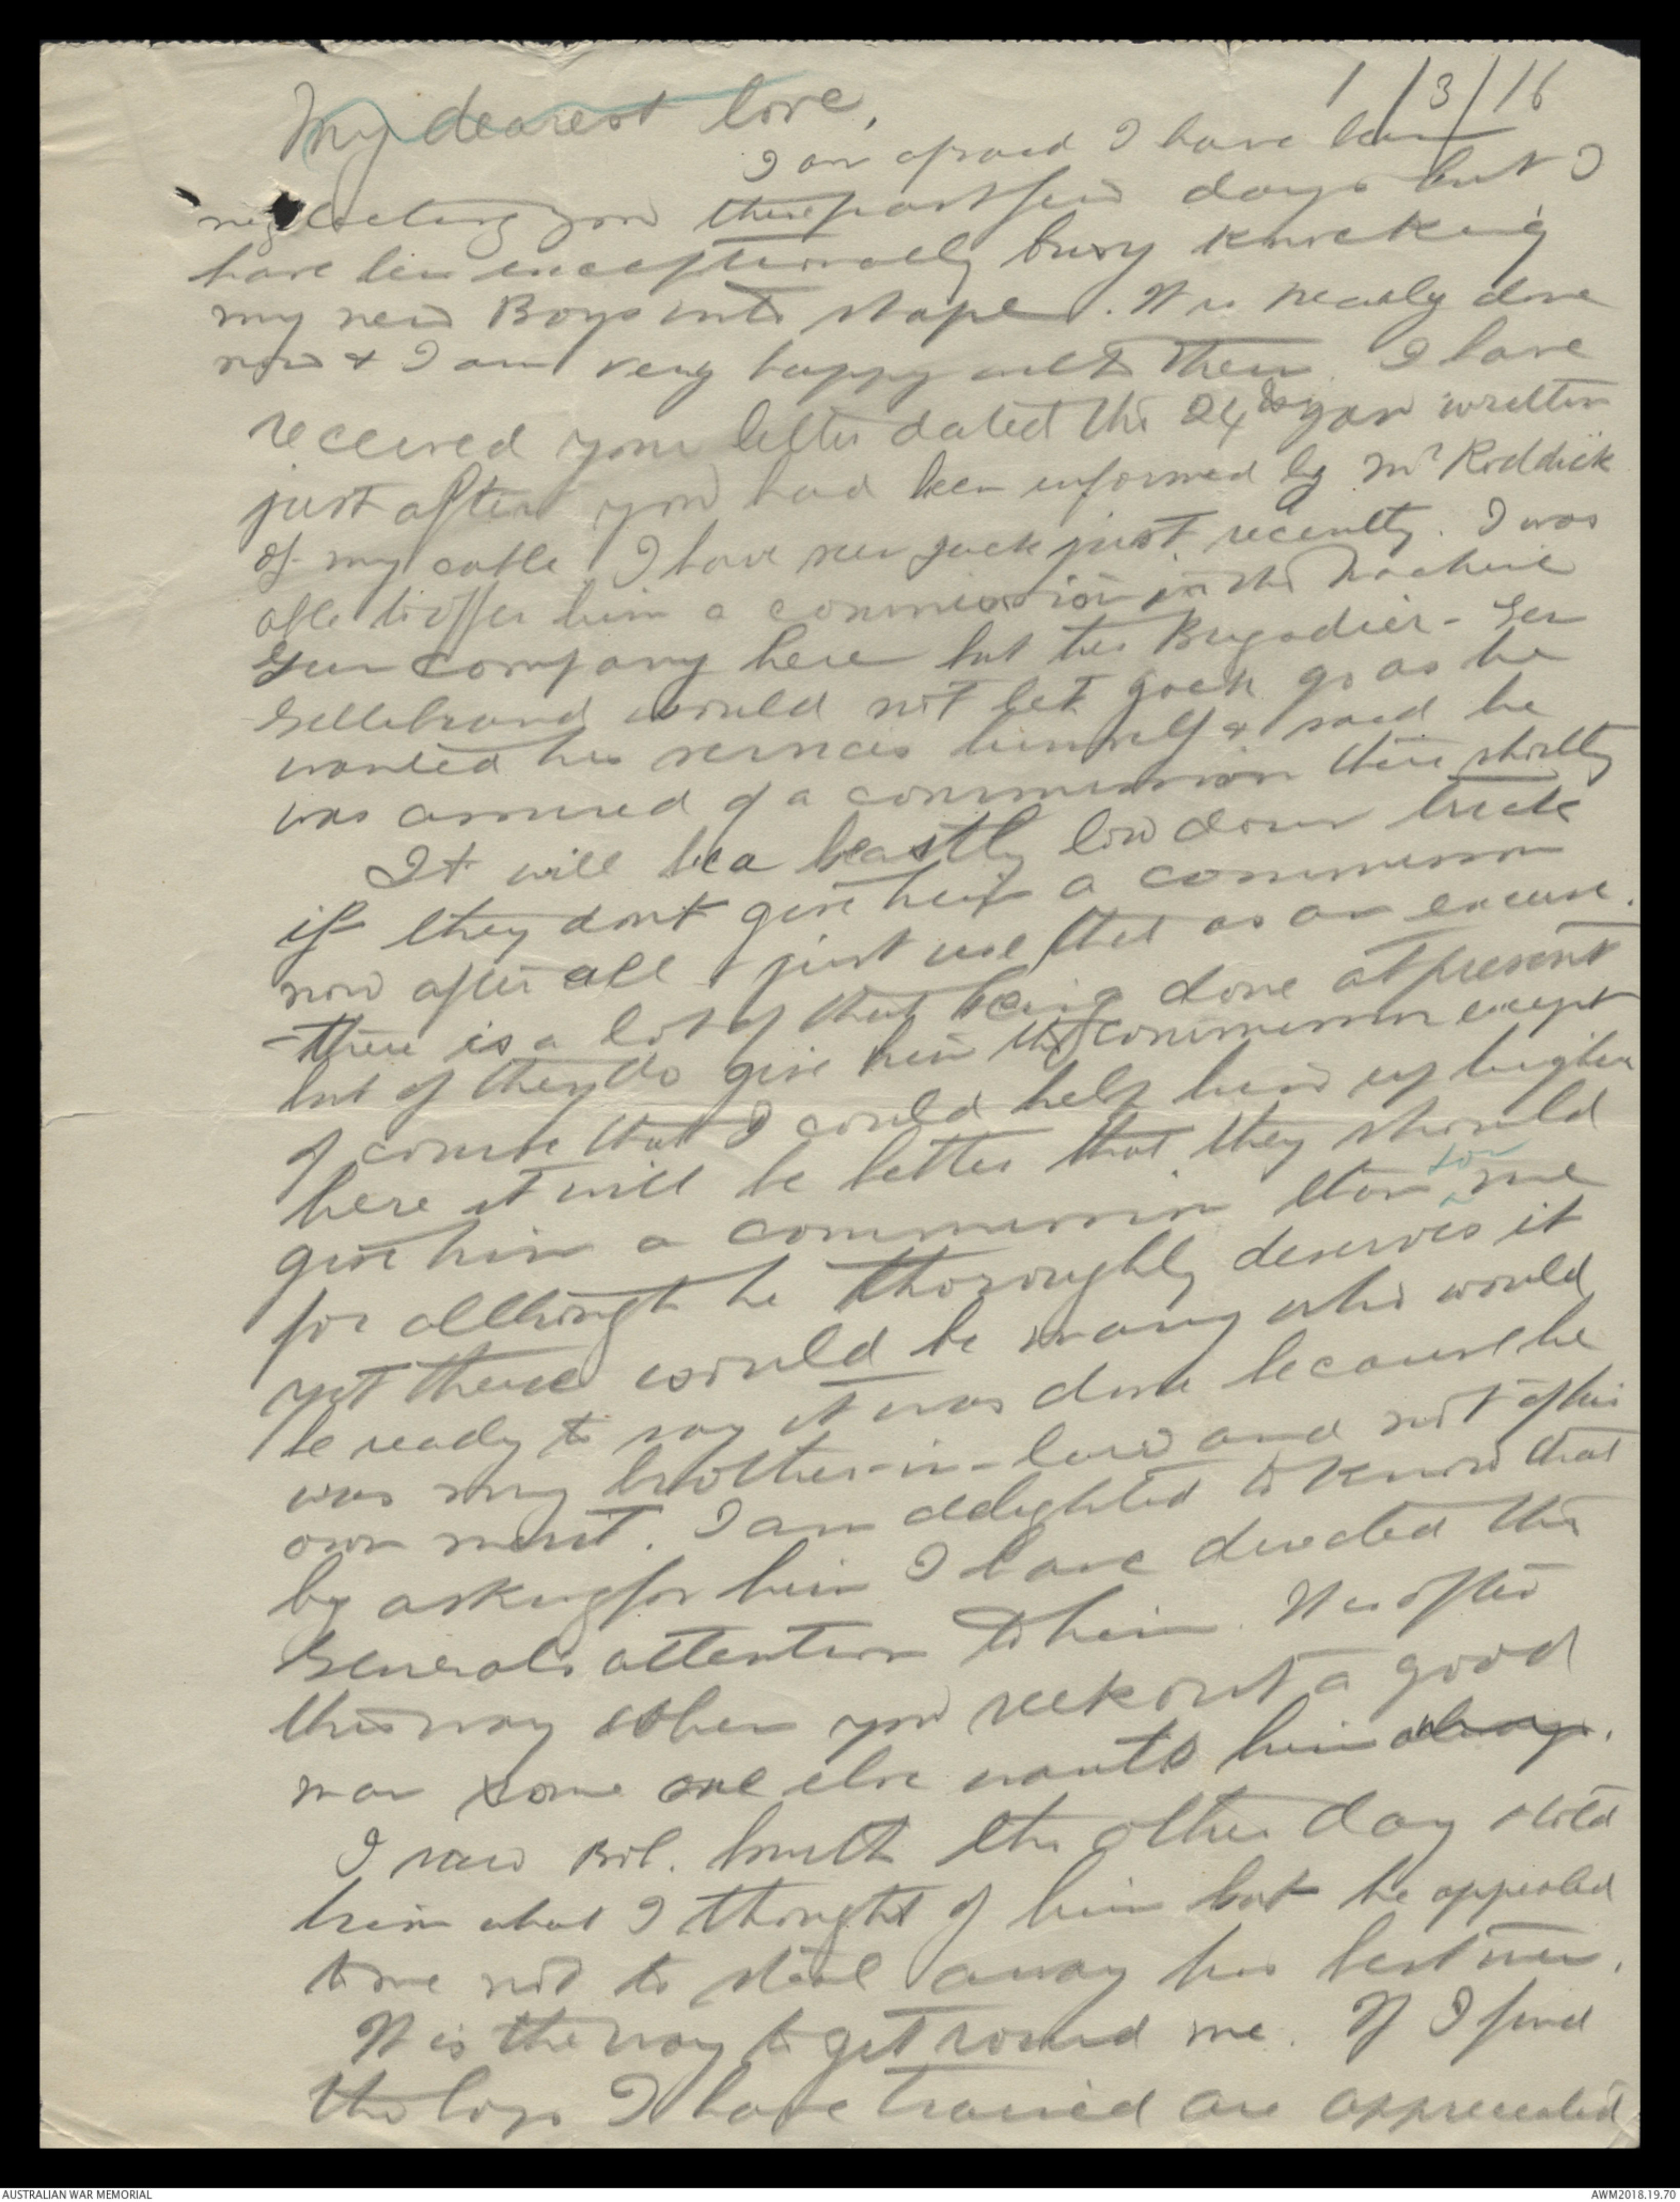 1/3/16
My dearest love,
I am afraid I have been
neglecting you these past few days but I
have been exceptionally busy knocking
my new Boys into shape. It is nearly done
now & I am very happy with them. I have
received your letter dated the 24th Jan written
just after you had been informed by Mr Roddick
of my cable. I have seen Jack just recently. I was
able to offer him a commission in the Machine
Gun Company here but the Brigadier-Gen
Gellibrand would not let Jack go as he
wanted his services himself & said he
was assured of a commission there shortly
It will be a beastly low down trick
if they dont give him a commission
now after all & just use that as an excuse.
- there is a lot of that being done at present
but if they do give him the commission except
of course that I could help him up higher
here it will be better that they should
give him a commission than for me
for although he thoroughly deserves it
yet there would be many who would
be ready to say it was done because he
was my brother-in-law and not of his
own merit. I am delighted to know that
by asking for him I have directed the
Generals attention to him. It is often
the way when you seek out a good
man some one else wants him
I saw Col. Smith the other day & told
him what I thought of him but he appealed
to me not to steal away his best men.
It is the way to get round me. If I find
the boys I have trained are appreciated
AUSTRALIAN WAR MEMORIAL
AWM2018.19.70